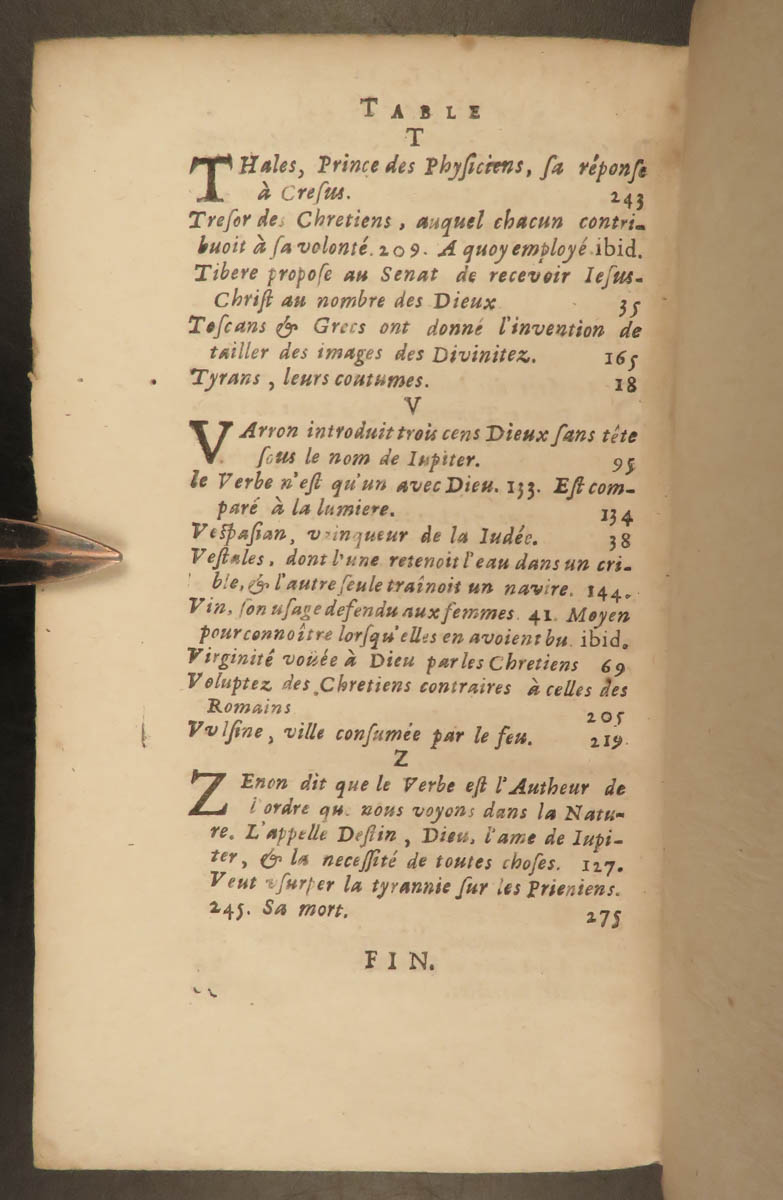 TABLE
T
THales, Prince des Phyſiciens, ſa réponſe
à Creſus. 243
Treſor des Chretiens, auquel chacun contri-
buoit à ſa volonté. 209. A quoy employé ibid.
Tibere propoſe au Senat de recevoir Ieſus-
Chriſt au nombre des Dieux 35
Toſcans & Grecs ont donné l'invention de
tailler des images des Divinitez. 165
Tyrans, leurs coutumes. 18
V
VArron introduit trois cens Dieux ſans tête
ſous le nom de Iupiter. 95
le Verbe n'eſt qu'un avec Dieu. 133. Eſt com-
paré à la lumiere. 134
Veſpaſian, vainqueur de la Iudée. 38
Veſtales, dont l'une retenoit l'eau dans un cri-
ble, & l'autre ſeule traînoit un navire. 144.
Vin, ſon uſage defendu aux femmes. 41. Moyen
pour connoître lorſqu'elles en avoient bu. ibid.
Virginité voüée à Dieu par les Chretiens 69
Voluptez des Chretiens contraires à celles des
Romains 205
Vulſine, ville conſumée par le feu. 219.
Z
ZEnon dit que le Verbe eſt l'Autheur de
l'ordre que nous voyons dans la Natu-
re. L'appelle Deſtin, Dieu, l'ame de Iupi-
ter, & la neceſſité de toutes choſes. 127.
Veut vſurper la tyrannie ſur les Prieniens.
245. Sa mort. 275
FIN.